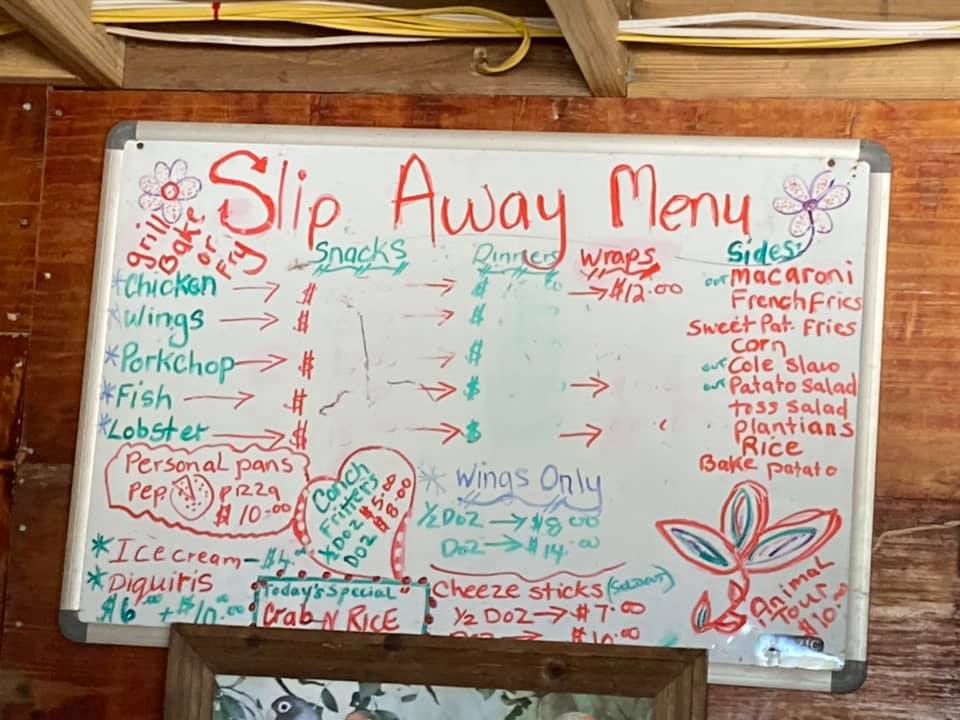 Slip Away Menu
Grill
Bake
or
Fry
Snacks Dinners Wraps Sides:
*Chicken → $ → $ → $12.00
*Wings → $ → $
*Porkchop → $ → $
*Fish → $ → $ →
*Lobster → $ → $ →
out Macaroni
French Fries
Sweet Pat. Fries
Corn
out Cole Slaw
out Patato Salad
toss Salad
plantians
Rice
Bake patato
Personal pans
Pep. Pizza
$10.00
Conch
Fritters
½Doz $5.00
Doz $8.00
* Wings Only
½ Doz → $8.00
Doz → $14.00
*Ice cream –
*Diquiris
$6.00 + $10.00
"Today's Special"
Crab N Rice
Cheeze sticks (Sold out)
½ Doz → $7.00
Doz → $10.00
Animal
Tour
$10.00